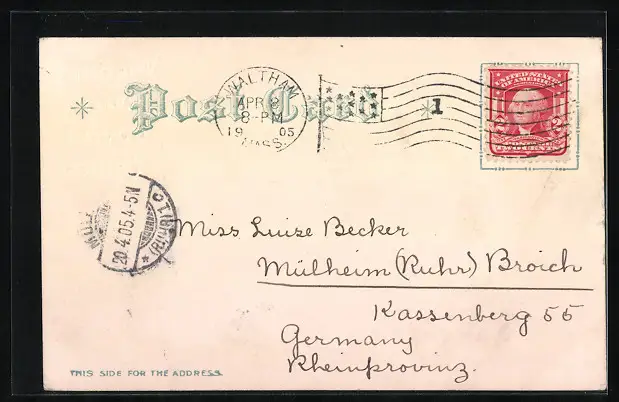 Post Card
WALTHAM
APR 8
8-PM
19 05
MASS.
1
UNITED STATES
OF AMERICA
2 2
POSTAGE
TWO CENTS
20.4.05.4-5N
(RUHR)
Miss Luise Becker
Mülheim (Ruhr) Broich
Kassenberg 55
Germany
Rheinprovinz.
THIS SIDE FOR THE ADDRESS.